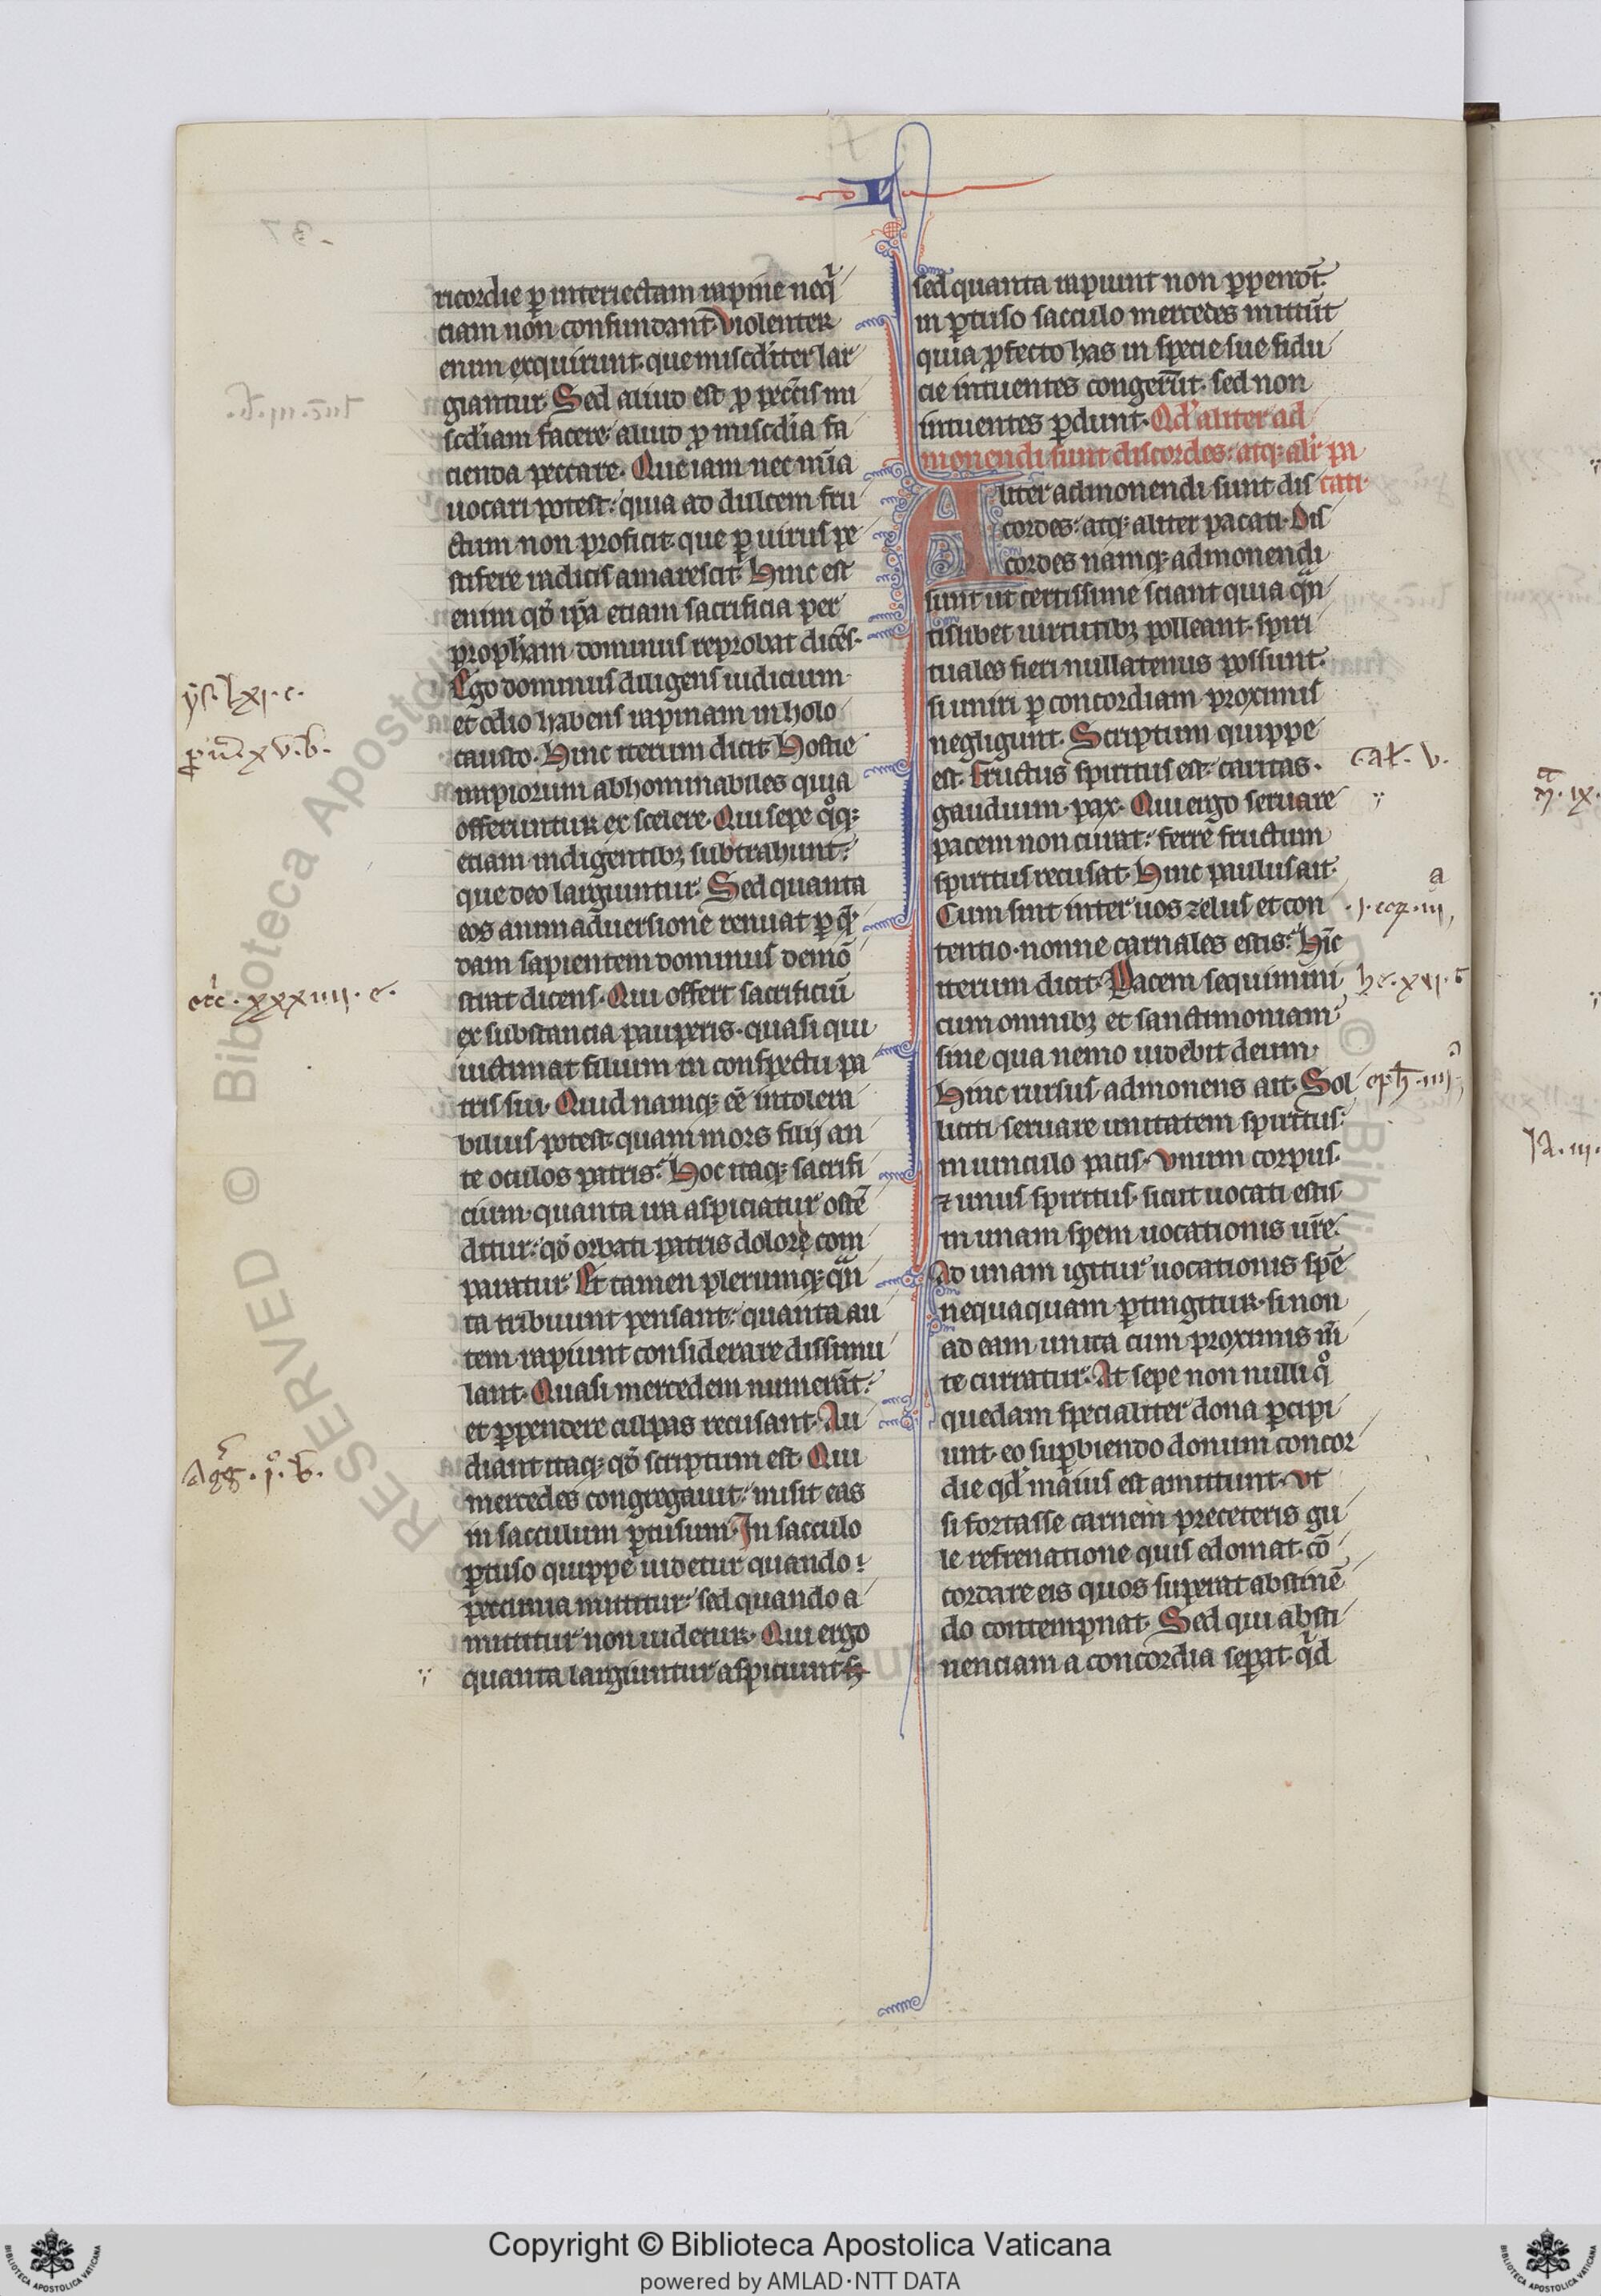 ricordie ꝑ interiectam rapine neq̅
ciam non confundant᷑. Violenter
enim exquirunt. que miscd̓iter lar
giantur. Sed aliud est ꝓ pecc̅is mi
scd̓iam facere. aliud ꝓ miscd̓ia fa
cienda peccare. Que iam nec mi̅a
uocari potest. quia ad dulcem fru
ctum non proficit. que ꝑ uirus pe
stifere radicis amarescit. Hinc est
enim qd̓ ip̅a etiam sacrificia per
proph̓am dominus reprobat dice̅s.
Ego dominus diligens iudicium
et odio habens rapinam in holo
causto. Hinc iterum dicit. Hostie
impiorum abhominabiles quia
offeruntur ex scelere. Qui sepe qͦqꝫ
etiam indigentibꝫ subtrahunt.
que deo largiuntur. Sed quanta
eos animaduersione renuat ꝑ q̅
dam sapientem dominus demo̅
strat dicens. Qui offert sacrificiu̅
ex substancia pauperis. quasi qui
uictimat filium in conspectu pa
tris sui. Quid namqꝫ ee̅ intolera
bilius potest. quam mors filij an
te oculos patris. Hoc itaqꝫ sacrifi
cium. quanta ira aspiciatur oste̅
ditur. qd̓ orbati patris dolore com
paratur. Et tamen plerumqꝫ qua̅
ta tribuunt pensant. quanta au
tem rapiunt considerare dissimu
lant. Quasi mercedem numera̅t.
et ꝑpendere culpas recusant. Au
diant itaqꝫ qd̓ scriptum est. Qui
mercedes congregauit. misit eas
in sacculum ꝑtusum. In sacculo
ꝑtuso quippe uidetur quando
peccunia mittitur. sed quando a
mittitur non uidetur. Qui ergo
quanta largiuntur aspiciunt
sed quanta rapiunt non ꝑpendu̅t.
in ꝑtuso sacculo mercedes mittu̅t
quia ꝓfecto has in specie sue fidu
cie intuentes congeru̅t. sed non
intuentes ꝑdunt. Qd̓ aliter ad
monendi sunt discordes. atqꝫ alr̓ pa
cati.
Aliter admonendi sunt dis
cordes. atqꝫ aliter pacati. Dis
cordes namqꝫ admonendi
sunt ut certissime sciant quia qua̅
tislibet uirtutibꝫ polleant. spiri
tuales fieri nullatenus possunt.
si uniri ꝑ concordiam proximis
negligunt. Scriptum quippe
est. Fructus spiritus est. caritas.
gaudium. pax. Qui ergo seruare
pacem non curat. ferre fructum
spiritus recusat. Hinc paulus ait.
Cum sint inter uos zelus et con
tentio. nonne carnales estis. Hi̅c
iterum dicit. Pacem sequimini
cum omnibꝫ et sanctimoniam
sine qua nemo uidebit deum.
Hinc rursus admonens ait. Sol
liciti seruare unitatem spiritus.
in uinculo pacis. Unum corpus.
⁊ unus spiritus. sicut uocati estis
in unam spem uocationis ur̅e.
Ad unam igitur uocationis spe̅
nequaquam ꝑtingitur. si non
ad eam unita cum proximis m̅
te curratur. At sepe non nulli qͦ
quedam specialiter dona ꝑcipi
unt. eo suꝑbiendo donum concor
die qd̓ maius est amittunt. Ut
si fortasse carnem preceteris gu
le refrenatione quis edomat. co̅
cordare eis quos superat abstine̅
do contempnat. Sed qui absti
nenciam a concordia seꝑat. qͥd
ys. lxi. c.
ꝓu̅. xv. b.
etc. xxxiiii. e.
Agg. i. b.
Gal. v.
a
.i. cor. iii
he. xii. c
eph̅. iiii